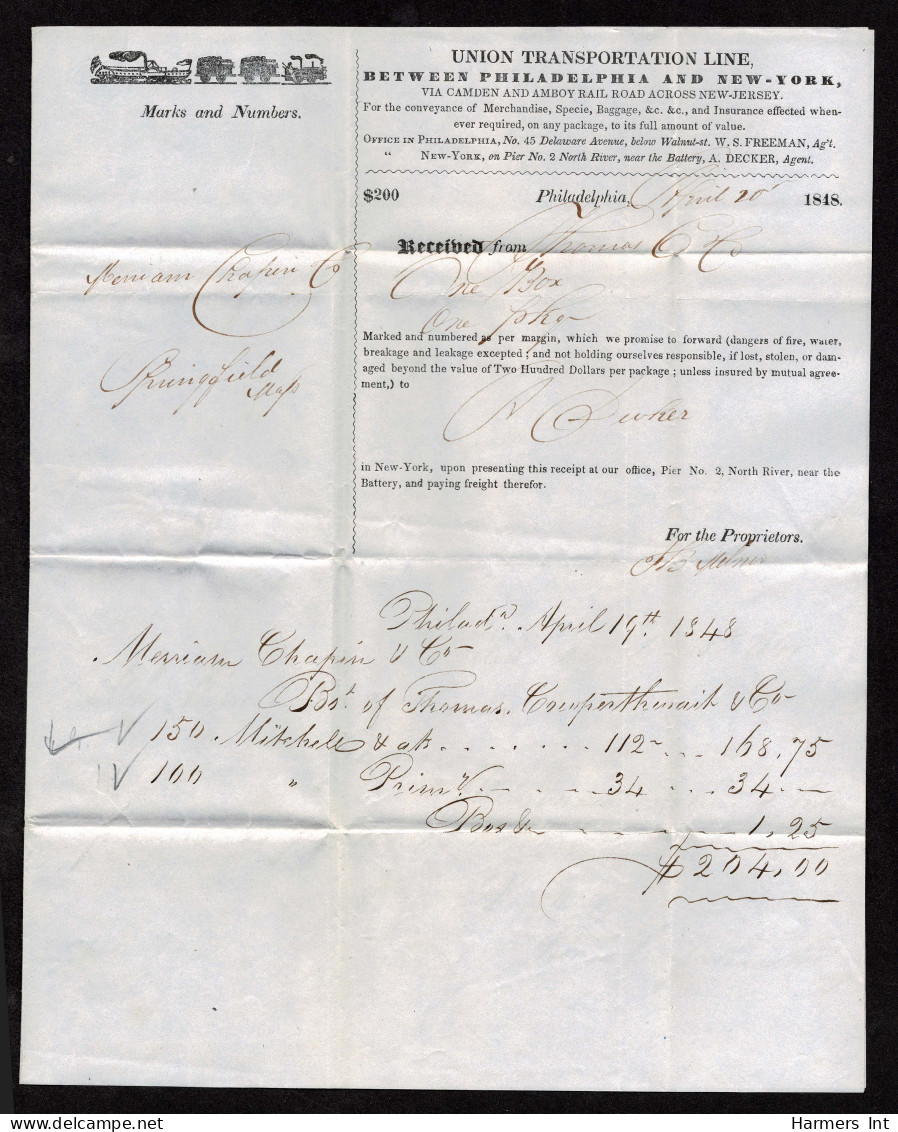 Marks and Numbers.
UNION TRANSPORTATION LINE,
BETWEEN PHILADELPHIA AND NEW-YORK,
VIA CAMDEN AND AMBOY RAIL ROAD ACROSS NEW-JERSEY.
For the conveyance of Merchandise, Specie, Baggage, &c. &c., and Insurance effected when-
ever required, on any package, to its full amount of value.
OFFICE IN PHILADELPHIA, No. 45 Delaware Avenue, below Walnut-st. W. S. FREEMAN, Ag't.
" NEW-YORK, on Pier No. 2 North River, near the Battery, A. DECKER, Agent.
$200 Philadelphia, April 20 1848.
Received from Thomas C & Co
Merriam Chapin & Co
One Box
One pkg
Springfield
Mass
Marked and numbered as per margin, which we promise to forward (dangers of fire, water,
breakage and leakage excepted; and not holding ourselves responsible, if lost, stolen, or dam-
aged beyond the value of Two Hundred Dollars per package; unless insured by mutual agree-
ment,) to
A Decker
in New-York, upon presenting this receipt at our office, Pier No. 2, North River, near the
Battery, and paying freight therefor.
For the Proprietors.
Philada. April 19th. 1848
Merriam Chapin & Co
Bot. of Thomas, Cowperthwait & Co
150 Mitchell 112 168,75
100 " Prim 34 34
Box 1,25
$204,00
Harmers Int